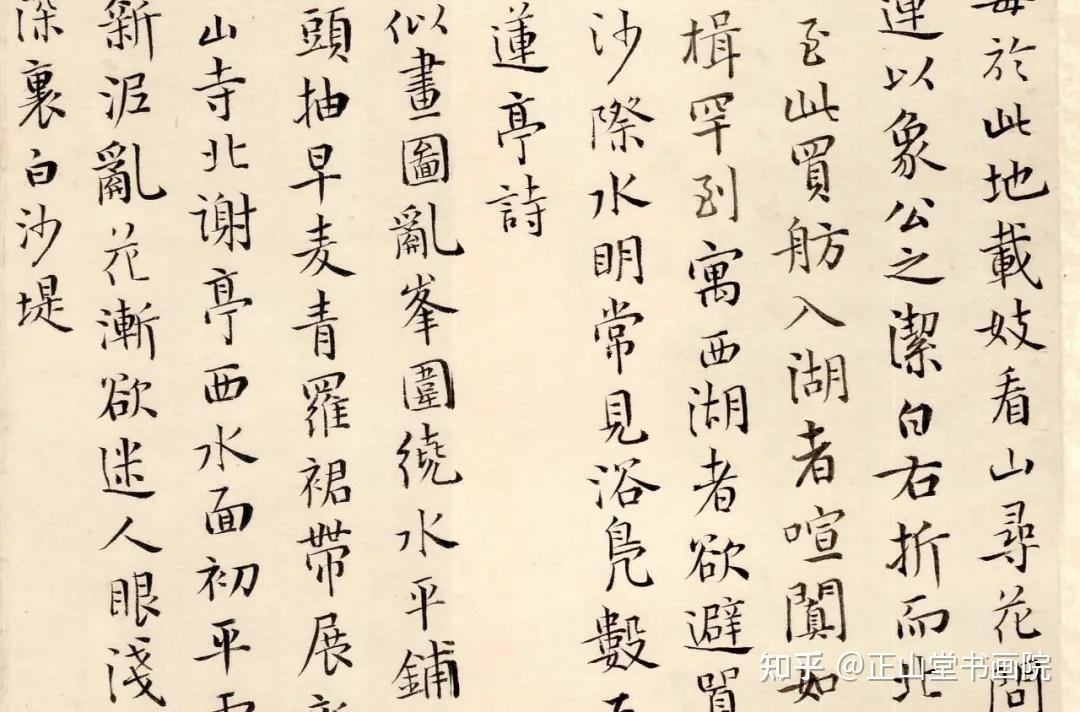 於此地載妓看山尋花問
連以象公之潔白右折而北
至此買舫入湖者喧闐如
楫罕到寓西湖者欲避買
沙際水明常見浴鳧數
蓮亭詩
似畫圖亂峯圍繞水平鋪
頭抽早麦青羅裙帶展
山寺北谢亭西水面初平
新泥亂花漸欲迷人眼淺
深裏白沙堤
知乎 @正山堂书画院